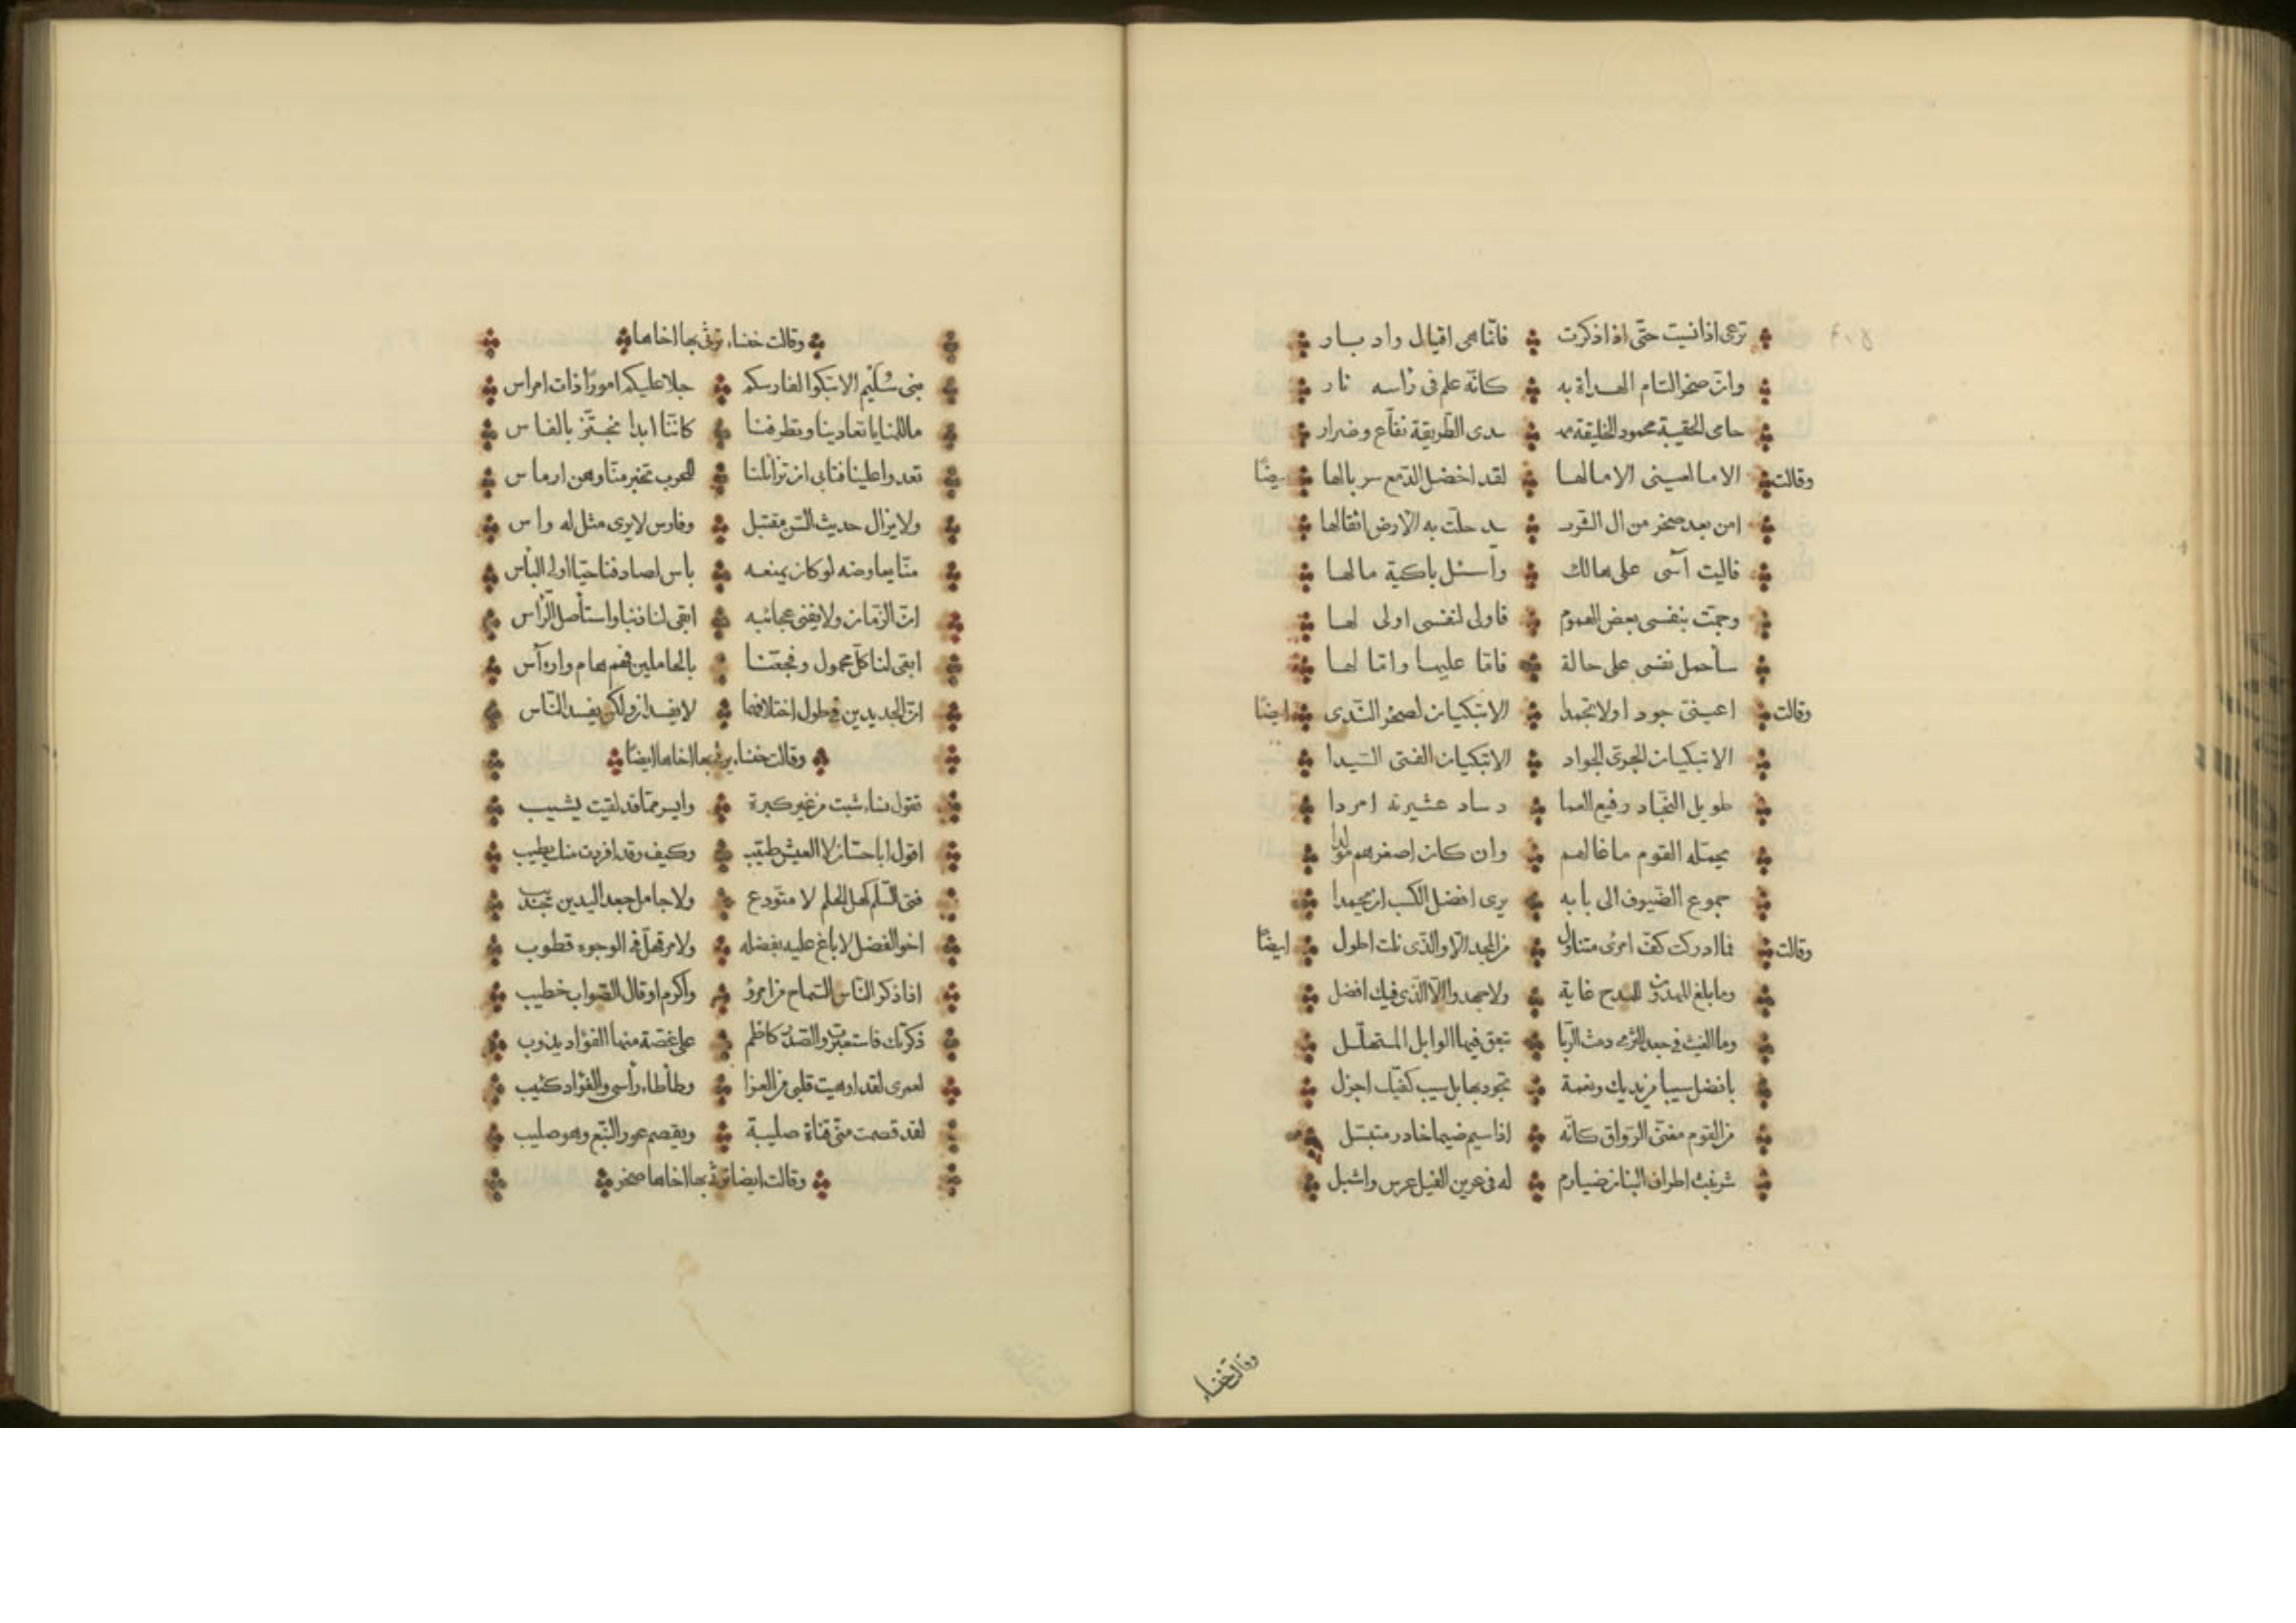 ترعى اذا نسيت حتى اذا ذكرت فانما هى اقبال وادبار
وان صخرا لتاتم الهداة به كانه علم فى راسه نار
حامى الحقيبة محمود الخليقة مهـ ـدى الطريقة نفاع وضرار
وقالت الا ما لعينى الا ما لها لقد اخضل الدمع سربالها ايضًا
امن بعد صخر من ال الشريـ ـد حلت به الارض اثقالها
فاليت آسى على هالك وأسئل باكية ما لها
وهمت بنفسى بعض الهموم فاولى لنفسى اولى لها
سأحمل نفسى على حالة فاما عليها واما لها
وقالت اعينىّ جودا ولا تجمدا الا تبكيان لصخر الندى ايضًا
الا تبكيان الجرى الجواد الا تبكيان الفتى السيدا
طويل النجاد رفيع العما د ساد عشيرته امردا
يحمله القوم ما غالهم وان كان اصغرهم مولدا
جموع الضيوف الى بابه يرى افضل الكسب ان يحمدا
وقالت فما ادركت كف امرئ متناول من المجد الا والذى نلت اطول ايضًا
وما بلغ المهدون للمدح غاية ولا جهدوا الا الذى فيك افضل
وما الغيث فى جعد الثرى دمث الربا تبعق فيها الوابل المتهلل
بافضل سيبا من يديك ونعمة تجود بها بل سيب كفيك اجزل
من القوم مغشى الرواق كانه اذا سيم ضيما خادر متبسل
شرنبث اطراف البنان ضبارم له فى عرين الغيل عرس واشبل
وقالت خنساء
وقالت خنساء ترثى بها اخاها
بنى سُلَيم الا تبكوا لفارسكم جلا عليكم امورًا ذات امراس
ما للمنايا تعادينا وتطرفنا كاننا ابدا نجتز بالفاس
تعدوا علينا فتابى ان تزائلنا للحرب منا وهن ارماس
ولا يزال حديث السن مقتبل وفارس لا يرى مثل له راس
منا يعاوضه لو كان يمنعه باس لصادفنا حيا اولى الباس
ان الزمان ولا يفنى عجائبه ابقى لنا ذنبا واستأصل الراس
ابقى لنا كل مجهول وفجعنا بالحاملين فهم هام وارآس
ان الجديدين فى طول اختلافهما لا يفسدان ولكن يفسد الناس
وقالت خنساء يرثى بها اخاها ايضًا
تقول نساء شبت من غير كبرة وايسر مما قد لقيت يشيب
اقول ابا حسان لا العيش طيب وكيف وقد افردت منك يطيب
فتى السلم كهل الحلم لا متودع ولا جامد جعد اليدين
اخو الفضل لا باغ عليه بفضله ولا فى الوجوه قطوب
اذا ذكر الناس السماح من امرؤ واكرم او قال الصواب خطيب
ذكرتك فاستعبرت والصدر كاظم على غصة منها الفؤاد يذوب
لعمرى لقد اوهيت قلبى من العزا وطأطاء رأسى والفؤاد كئيب
لقد قصمت منى قناة صليبة ويقصم عود النبع وهو صليب
وقالت ايضا ترثى بها اخاها صخر